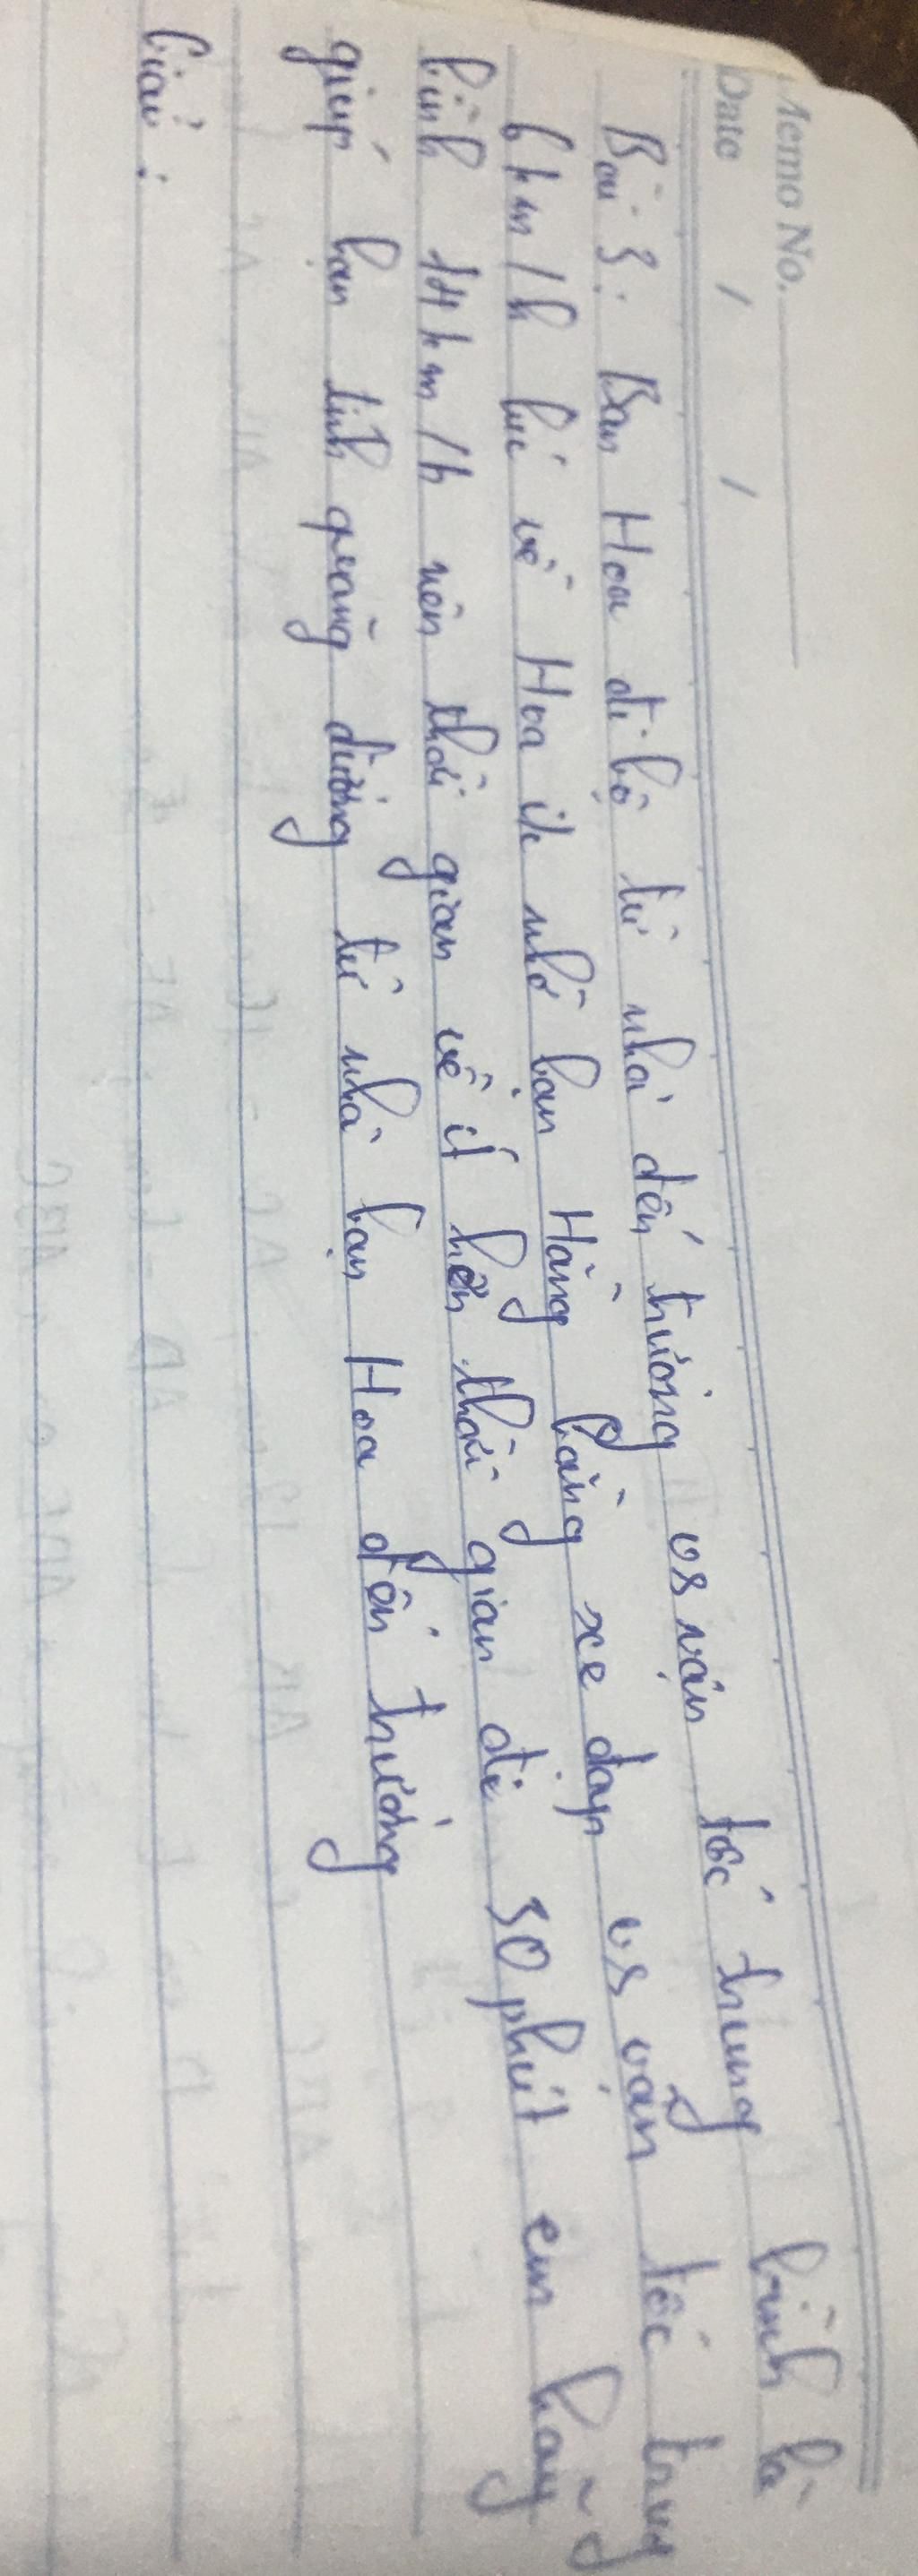 Memo No.
Date / /
Bài 3: Bạn Hoa đi bộ từ nhà đến trường vs vận tốc trung bình là
6km/h lúc về Hoa đc nhờ bạn Hằng bằng xe đạp vs vận tốc trung
bình 14km/h nên thời gian về ít hơn thời gian đi 30 phút em hãy
giúp bạn tính quãng đường từ nhà bạn Hoa đến trường
Giải: